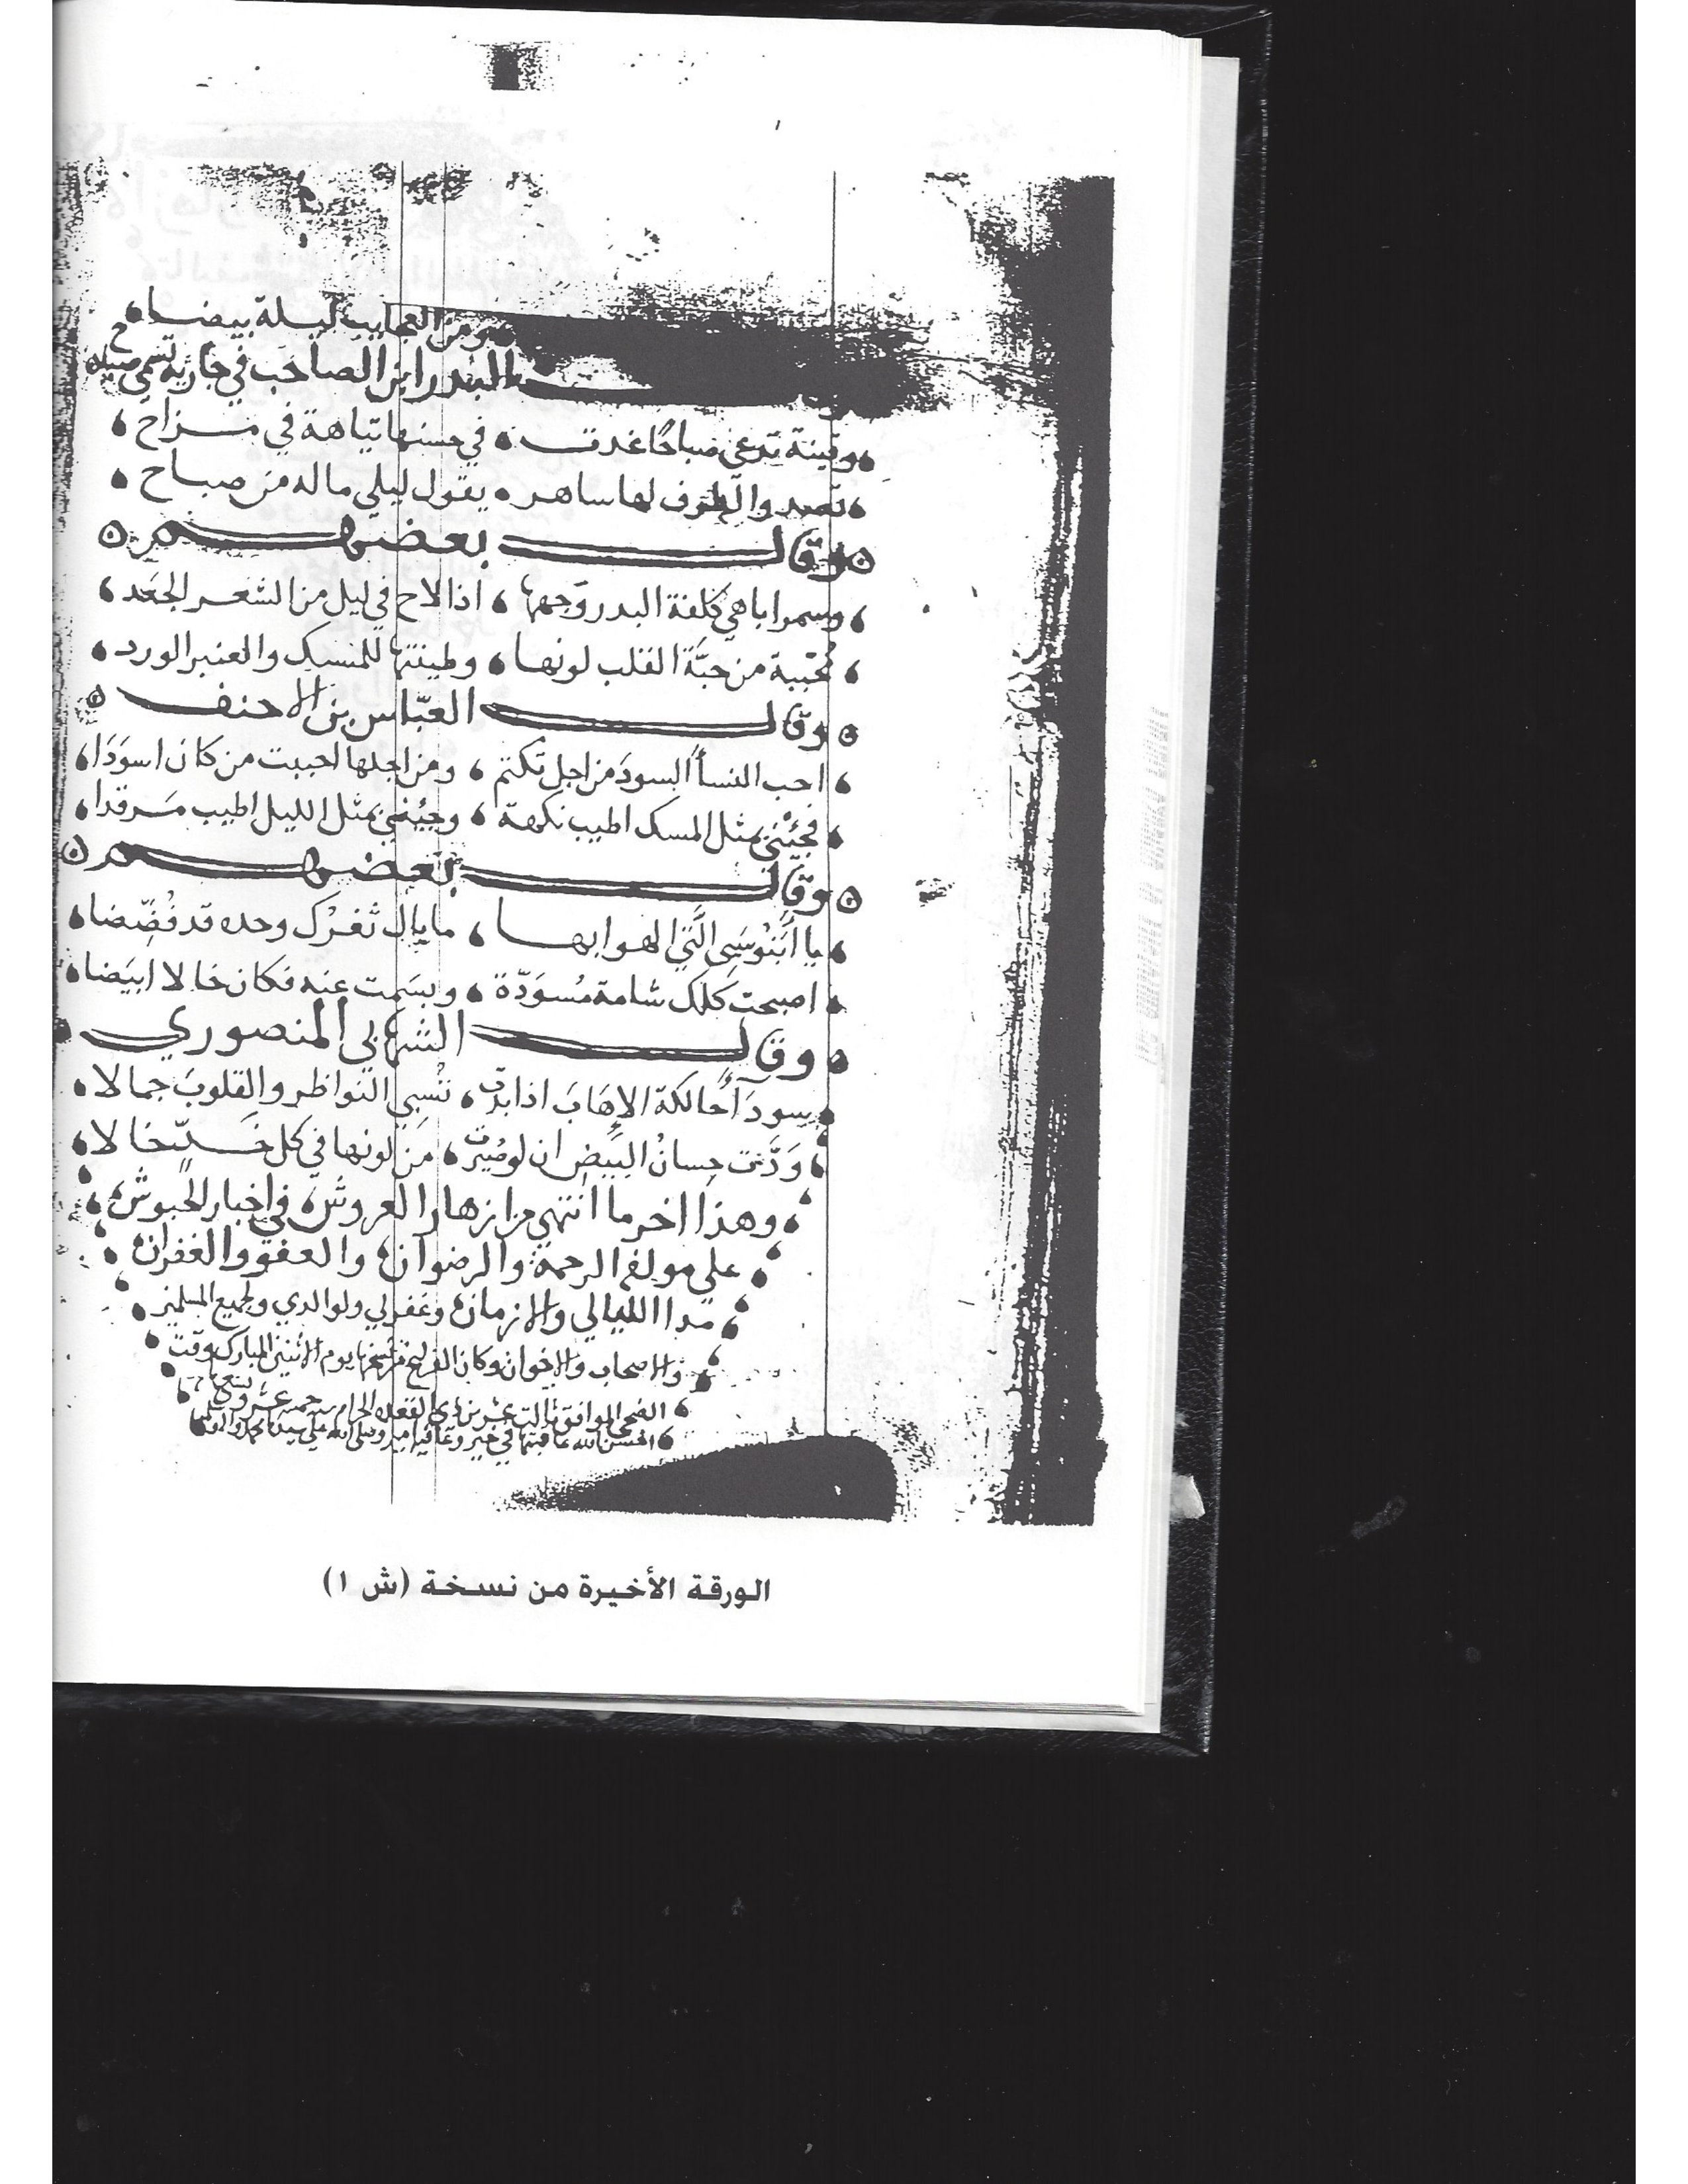 ومن العجايب ليلة بيضاء
البدر ابن الصاحب في جارية تسمي صباح
وقينة تدعي صباحًا غدت في حسنها تياهة في مزاح
تصد والطرف لها ساهر يقول ليلي ماله من صباح
وقال بعضهم
وسمرا باهي كلفة البدر وجهها اذا لاح في ليل من الشعر الجعد
محببة من حبَّة القلب لونها وطينتها للمسك والعنبر الورد
وقال العبّاس بن الاحنف
احب النسأ السود من اجل تكتم ومن اجلها احببت من كان اسودا
فجئني بمثل المسك اطيب نكهة وجئني بمثل الليل اطيب مرقدا
وقال بعضهم
يا ابنوسي التي اهوا بها ما بال ثغرك وحده قد فُضِّضا
اصبحت كلك شامة مُسودّة وبسمت عنه فكان خالا ابيضا
وقال الشهابي المنصوري
سودآ حالكة الاهاب اذا بدت تسبي النواظر والقلوب جمالا
ودَّت حسان البيض ان لو صُيّرت من لونها في كل خدٍّ خالا
وهذا اخر ما انتهي من ازهار العروش في اخبار الحبوش
علي مولفه الرحمة والرضوان والعفو والغفران
مدا الليالي والازمان وغفر لي ولوالدي ولجميع المسلمين
والاصحاب والاخوان وكان الفراغ من نسخها يوم الاثنين المبارك وقت
الضحي الموافق ثالث عشر من ذي القعدة الحرام سنة خمسة عشر
احسن الله عاقبتها في خير وعافية امين وصلى الله علي سيدنا محمد
الورقة الأخيرة من نسخة (ش ١)